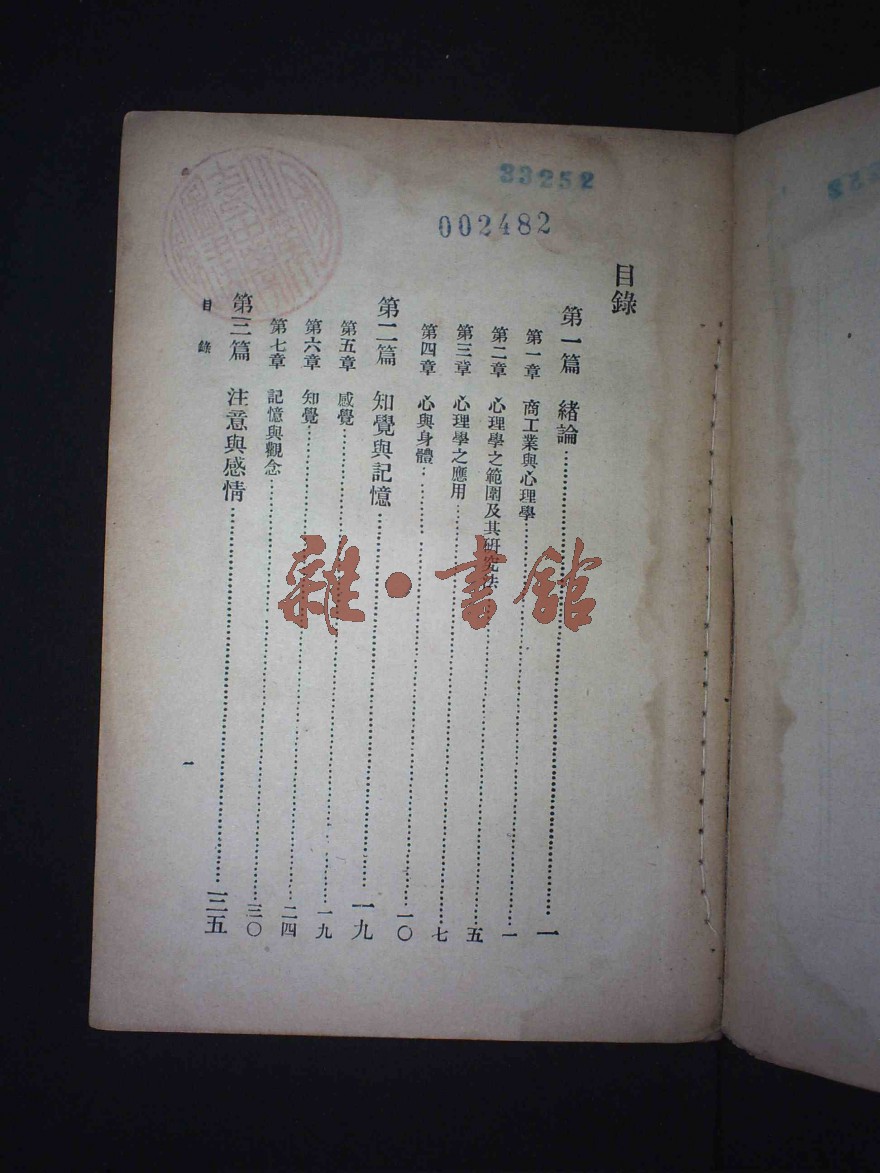 33252
002482
目錄
第一篇 緒論……一
第一章 商工業與心理學……一
第二章 心理學之範圍及其研究法……五
第三章 心理學之應用……七
第四章 心與身體……一〇
第二篇 知覺與記憶……一九
第五章 感覺……一九
第六章 知覺……二四
第七章 記憶與觀念……三〇
第三篇 注意與感情……三五
目錄
一
雜·書館